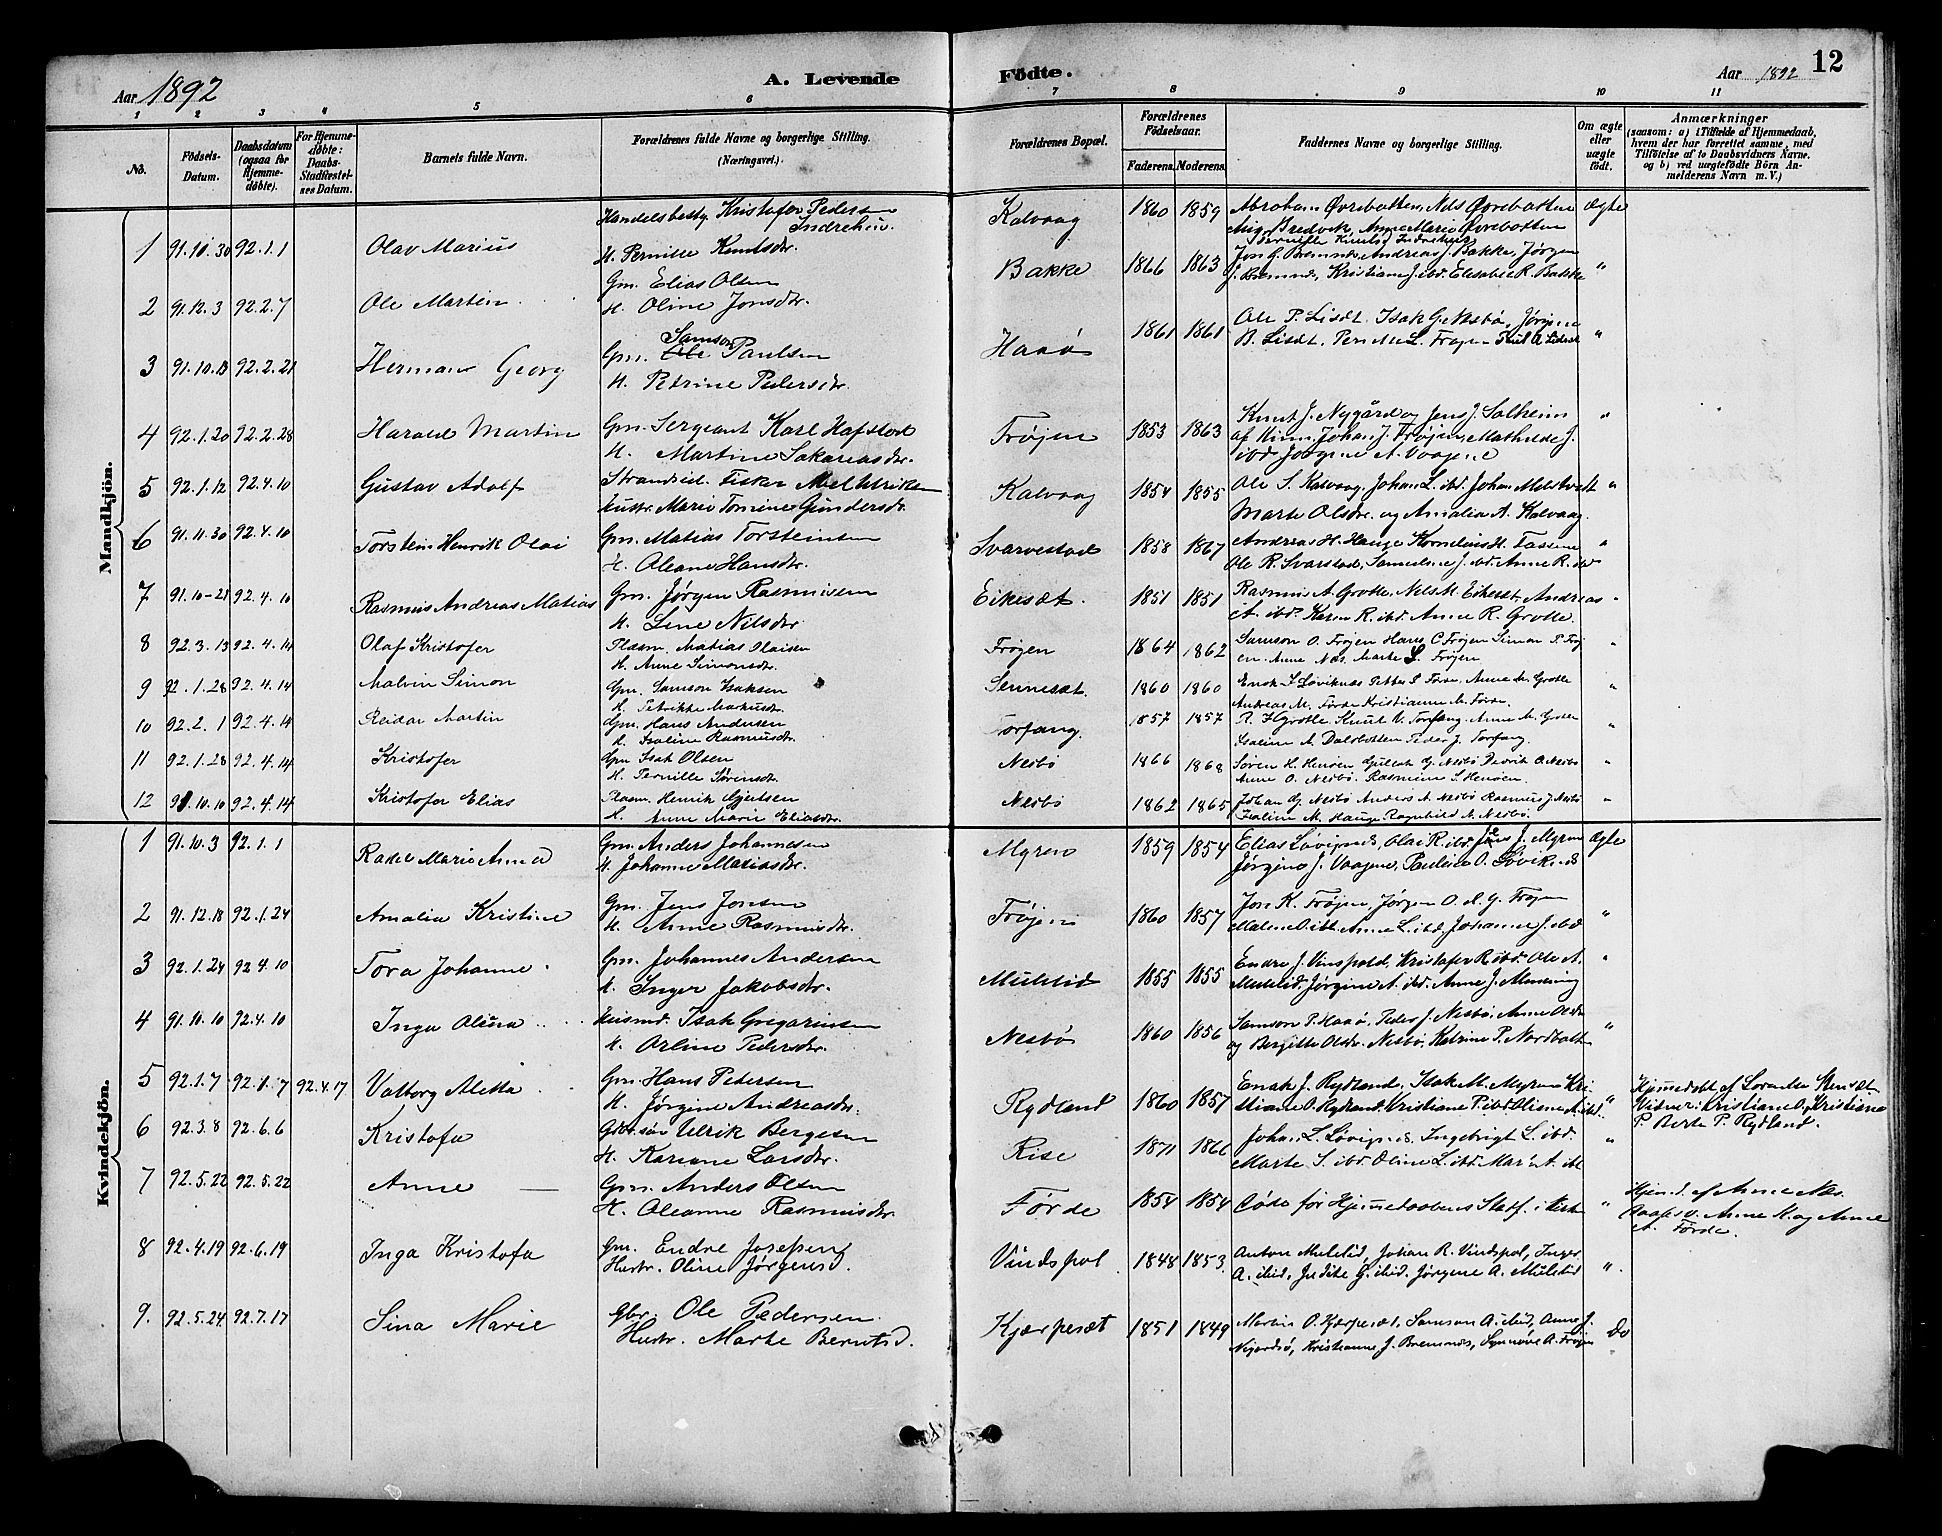 Aar 1892
A. Levende Fødte.
Aar 1892
12
1 2 3 4 5 6 7 8 9 10 11
No.
Fødsels-Datum.
Daabsdatum (ogsaa for Hjemmedøbte).
For Hjemmedøbte: Daabs-Stadfæstelses Datum.
Barnets fulde Navn.
Forældrenes fulde Navne og borgerlige Stilling.
(Næringsvei.)
Forældrenes Bopæl.
Forældrenes Fødselsaar.
Faderens. Moderens.
Faddernes Navne og borgerlige Stilling.
Om ægte eller uægte født.
Anmærkninger
(saasom: a) i Tilfælde af Hjemmedaab, hvem der har forrettet samme, med Tilføielse af to Daabsvidners Navne. og b) ved uægtefødte Börn Anmelderens Navn m. V.)
Mandkjön.
1 91.10.30 92.1.1 Olav Marius
Handelsbesty. Kristofer Pedersen Indrehus
H. Pernille Knutsdtr.
Kalvaag 1860 1859
Abraham Øvrebotten, Nels Øvrebotten Ægte
Bredvik, Anne Marie Øvrebotten
2 91.12.3 92.2.7 Ole Martin
Gm. Elias Olsen
H. Oline Jonsdtr.
Bakke 1866 1863
Jon G. Bremnes Andreas J. Bakke Jørgen
J. Bremnes, Kristiane J. ibd. Elisabet R. Bakke "
3 91.10.13 92.2.21 Herman Georg
Gm. Samson Paulsen
H. Petrine Pedersdtr.
Haaø 1861 1861
Ole P. Lisdt. Isak G. Nesbø, Jørgine
B. Lisdt. L. Frøjen "
4 92.1.20 92.2.28 Harald Martin
Gm. Sergeant Karl Hafstad
H. Martine Sakariasdtr.
Frøjen 1853 1863
Knut J. Nygård og Jens J. Solheim
af Kinn, Johan J. Frøjen, Mathilde J.
ibd Jørgine A. Vaagene "
5 92.1.12 92.4.10 Gustav Adolf
Strandsid. Fisker
Hustr. Marie Tomine Gundersdt.
Kalvaag 1854 1855
Ole S. Kalvaag, Johan L. ibd. Johan "
Marte Olsdtr. og Amalia A. Kalvaag.
6 91.11.30 92.4.10 Torstein Henrik Olai
Gm. Matias Torsteinsen
H. Oleane Hansdtr.
Svarvestad 1858 1867
Andreas H. Hauge Kornelius H. "
Ole R. Svarstad, Samueline J. ibd. Anne R. ibd
7 91.10-21 92.4.10 Rasmus Andreas Matias
Gm. Jørgen Rasmusen
H. Lene Nilsdtr.
Eikesæt. 1851 1851
Rasmus A. Grotle, Nels M. Eikeset, Andreas "
A. ibd. Karen R. ibd. Anne R. Grotle.
8 92.3.13 92.4.14 Olaf Kristofer
Plasm. Matias Olaisen
H. Anne Simonsdt.
Frøjen 1864 1862
Samson O. Frøjen Hans C Frøjen Simon P. Frøj "
en. Anne Næs. Marte L. Frøjen
9 92.1.28 92.4.14 Malvin Simon
Gm. Samson Isaksen
H. Petrikke Markusdt.
Sennesæt. 1860 1860
Enok I. Løviknæs Petter P. Førde, Anne M. Grotle "
Andreas M. Førde Kristianne M. Førde.
10 92.2.1 92.4.14 Reidar Martin
Gm. Hans Andersen
H. Isaline Rasmusdtr.
Torfang. 1857 1857
R. H. Grotle. Knut U. Torfang, Anne M. Grotle "
Isaline A. Dalsbotten Peder J. Torfang.
11 92.1.28 92.4.14 Kristofer
Gm Isak Olsen
H. Pernille Sørensdt.
Nesbø 1866 1868
Søren H. Henøen Gullak G. Nesbø O. Nesbø "
Anne O. Nesbø. Rasmine S. Henøen.
12 91.10.10 92.4.14 Kristofer Elias
Plasm. Henrik Gjertsen
H. Anne Marie Eliasdtr.
Nesbø 1862 1865
Johan G. Nesbø Anders A. Nesbø Rasmus J. Nesbø "
Isaline M. Hauge Ragnhild A. Nesbø.
Kvindekjön.
1 91.10.3 92.1.1 Rakel Marie Anna
Gm. Anders Johannesen
H. Johanne Matiasdtr.
Myren 1859 1854
Elias Løvignes, Olai R. ibd. Jens J. Myren Ægte
Jørgine J. Vaagene, Pauline O. Løviknes
2 91.12.18 92.1.24 Amalia Kristine
Gm. Jens Jonsen
H. Anne Rasmusdtr.
Frøjen 1860 1857
Jon K. Frøjen, Jørgen O. d. y. Frøjen
Malene O. ibd. Anne L. ibd, Johanne J. ibd "
3 92.1.24 92.4.10 Tora Johanne
Gm. Johannes Andersen
H. Inger Jakobsdtr.
Mulelid 1855 1855
Endre J. Vinspold, Kristofer R. ibd. Ole A. "
Mulelid, Jørgine A. ibd. Anne J.
4 91.10.10 92.4.10 Inga Olina
Husmd. Isak Gregoriusen
H. Orline Pedersdtr.
Nesbø 1860 1856
Samson P. Haaø, Peder J. Nesbø, Anne Olsdtr
og Bergitte Olsdtr. Nesbø, Katrine P. Nordbott "
5 92.1.7 92.1.7 92.4.17 Valborg Aletta
Gm. Hans Petersen
H. Jørgine Andreasdtr.
Rydland 1860 1857
Enok J. Rydland, Isak M. Myren Kri-
stiane O. Rydland. Kristiane P. ibd. Oline A. ibd. "
Hjemmedøbt af Sennesæt
Vidner: Kristiane O. Kristiane
P. Berte P. Rydland.
6 92.3.8 92.6.6 Kristofa
Gbr. søn Ulrik Bergesen
H. Kariane Larsdtr.
Rise 1871 1866
Johan L. Løvignes, Ingebrigt L. ibd. "
Marte S. ibd. Oline L. ibd. Mari A. ibd
7 92.5.22 92.5.22 Anne —
Gm. Anders Olsen
H. Oleanne Rasmusdtr.
Førde 1854 1854
Døde før Hjemmedaabens Stadf. i Kirke "
Hjemd. af Anne Næs.
Daabsv. Anne M. og Anne
A. Førde.
8 92.4.19 92.6.19 Inga Kristofa
Gm. Endre Josefsen
Hustr. Oline Jørgensd.
Vindspol 1848 1853.
Anton Mulelid, Johan R. Vindspol, Inger
A. ibid, Judite G. ibid. Jørgine A. Mulelid "
9. 92.5.24. 92.7.17 Sina Marie
Gbr. Ole Pedersen
Hustr. Marte Berntsd.
Kjærpesæt 1851 1849
Martin O. Kjærpesæt, Samson A. ibid, Anne J. Do
Nigardsø, Kristianne J. Bremnes, Synnøve A. Frøjen